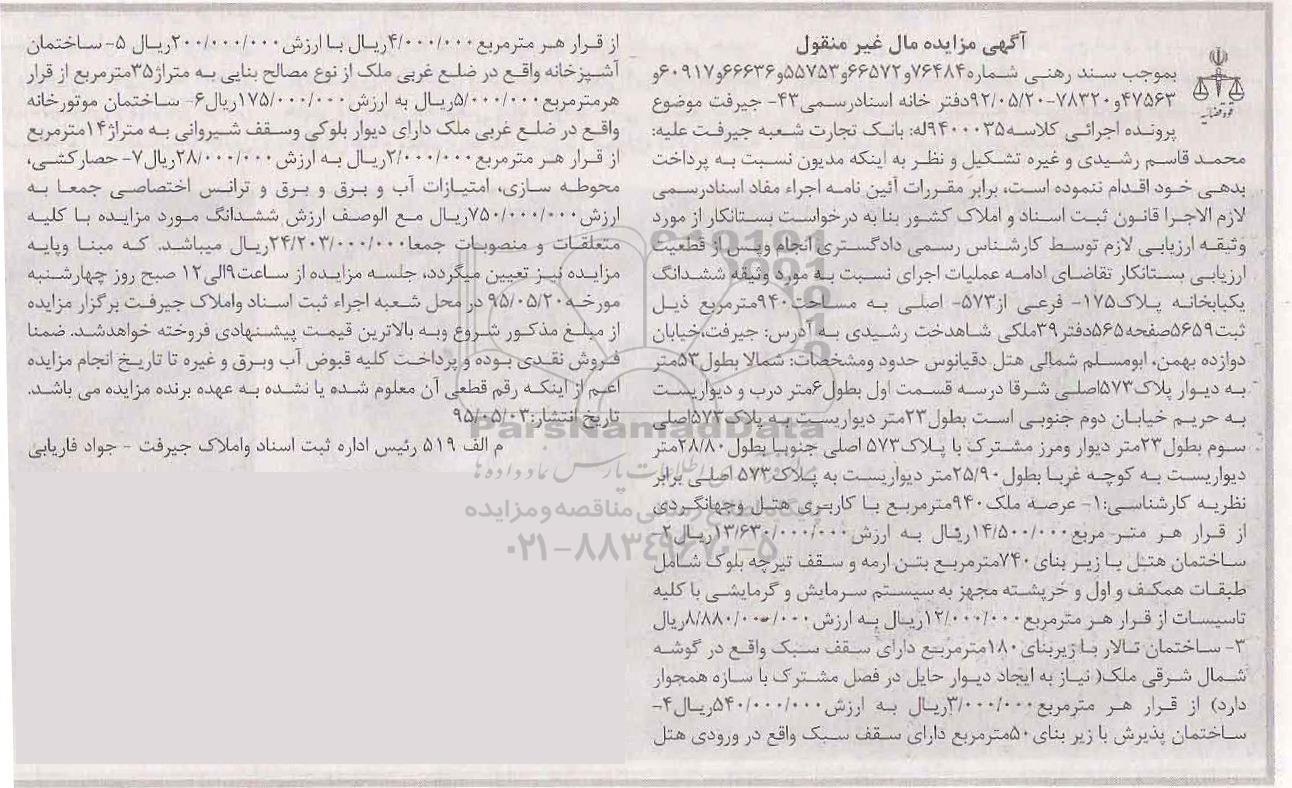 آگهی مزایده مال غیر منقول
بموجب سند رهنی شماره۷۶۴۸۴و۶۶۵۷۲و۵۵۷۵۳و۶۶۶۳۶و۶۰۹۱۷و
۴۷۵۶۳و۷۸۳۲۰-۹۲/۰۵/۲۰دفتر خانه اسنادرسمی۴۳- جیرفت موضوع
پرونده اجرائی کلاسه۹۴۰۰۰۳۵له: بانک تجارت شعبه جیرفت علیه:
محمد قاسم رشیدی و غیره تشکیل و نظر به اینکه مدیون نسبت به پرداخت
بدهی خود اقدام ننموده است، برابر مقررات آئین نامه اجراء مفاد اسنادرسمی
لازم الاجرا قانون ثبت اسناد و املاک کشور بنا به درخواست بستانکار از مورد
وثیقه ارزیابی لازم توسط کارشناس رسمی دادگستری انجام وپس از قطعیت
ارزیابی بستانکار تقاضای ادامه عملیات اجرای نسبت به مورد وثیقه ششدانگ
یکبابخانه پلاک۱۷۵- فرعی از۵۷۳- اصلی به مساحت۹۴۰مترمربع ذیل
ثبت۵۶۵۹صفحه۵۶۵دفتر۳۹ملکی شاهدخت رشیدی به آدرس: جیرفت،خیابان
دوازده بهمن، ابومسلم شمالی هتل دقیانوس حدود ومشخصات: شمالا بطول۵۳متر
به دیوار پلاک۵۷۳اصلی شرقا درسه قسمت اول بطول۶متر درب و دیواریست
به حریم خیابان دوم جنوبی است بطول۲۳متر دیواریست به پلاک۵۷۳اصلی
سوم بطول۲۳متر دیوار ومرز مشترک با پلاک۵۷۳ اصلی جنوبا بطول۲۸/۸۰متر
دیواریست به کوچه غربا بطول۲۵/۹۰متر دیواریست به پلاک۵۷۳ اصلی برابر
نظریه کارشناسی:۱- عرصه ملک۹۴۰مترمربع با کاربری هتل وجهانگردی
از قرار هر متر مربع۱۴/۵۰۰/۰۰۰ریال به ارزش۱۳/۶۳۰/۰۰۰/۰۰۰ریال۲-
ساختمان هتل با زیر بنای۷۴۰مترمربع بتن ارمه و سقف تیرچه بلوک شامل
طبقات همکف و اول و خرپشته مجهز به سیستم سرمایش و گرمایشی با کلیه
تاسیسات از قرار هر مترمربع۱۲/۰۰۰/۰۰۰ریال به ارزش۸/۸۸۰/۰۰۰/۰۰۰ریال
۳- ساختمان تالار با زیربنای۱۸۰مترمربع دارای سقف سبک واقع در گوشه
شمال شرقی ملک( نیاز به ایجاد دیوار حایل در فصل مشترک با سازه همجوار
دارد) از قرار هر مترمربع۳/۰۰۰/۰۰۰ریال به ارزش۵۴۰/۰۰۰/۰۰۰ریال۴-
ساختمان پذیرش با زیر بنای۵۰مترمربع دارای سقف سبک واقع در ورودی هتل
از قرار هر مترمربع۴/۰۰۰/۰۰۰ریال با ارزش۲۰۰/۰۰۰/۰۰۰ریال ۵- ساختمان
آشپزخانه واقع در ضلع غربی ملک از نوع مصالح بنایی به متراژ۳۵مترمربع از قرار
هرمترمربع۵/۰۰۰/۰۰۰ریال به ارزش۱۷۵/۰۰۰/۰۰۰ریال۶- ساختمان موتورخانه
واقع در ضلع غربی ملک دارای دیوار بلوکی وسقف شیروانی به متراژ۱۴مترمربع
از قرار هر مترمربع۲/۰۰۰/۰۰۰ریال به ارزش۲۸/۰۰۰/۰۰۰ریال۷- حصارکشی،
محوطه سازی، امتیازات آب و برق و برق و ترانس اختصاصی جمعا به
ارزش۷۵۰/۰۰۰/۰۰۰ریال مع الوصف ارزش ششدانگ مورد مزایده با کلیه
متعلقات و منصوبات جمعا۲۴/۲۰۳/۰۰۰/۰۰۰ریال میباشد. که مبنا وپایه
مزایده نیز تعیین میگردد، جلسه مزایده از ساعت۹الی۱۲ صبح روز چهارشنبه
مورخه۹۵/۰۵/۲۰ در محل شعبه اجراء ثبت اسناد واملاک جیرفت برگزار مزایده
از مبلغ مذکور شروع وبه بالاترین قیمت پیشنهادی فروخته خواهدشد. ضمنا
فروش نقدی بوده و پرداخت کلیه قبوض آب وبرق و غیره تا تاریخ انجام مزایده
اعم از اینکه رقم قطعی آن معلوم شده یا نشده به عهده برنده مزایده می باشد.
تاریخ انتشار:۹۵/۰۵/۰۳
م الف ۵۱۹ رئیس اداره ثبت اسناد واملاک جیرفت - جواد فاریابی
ParsNamadData
۰۲۱-۸۸۳۴۹۶۷۰-۵